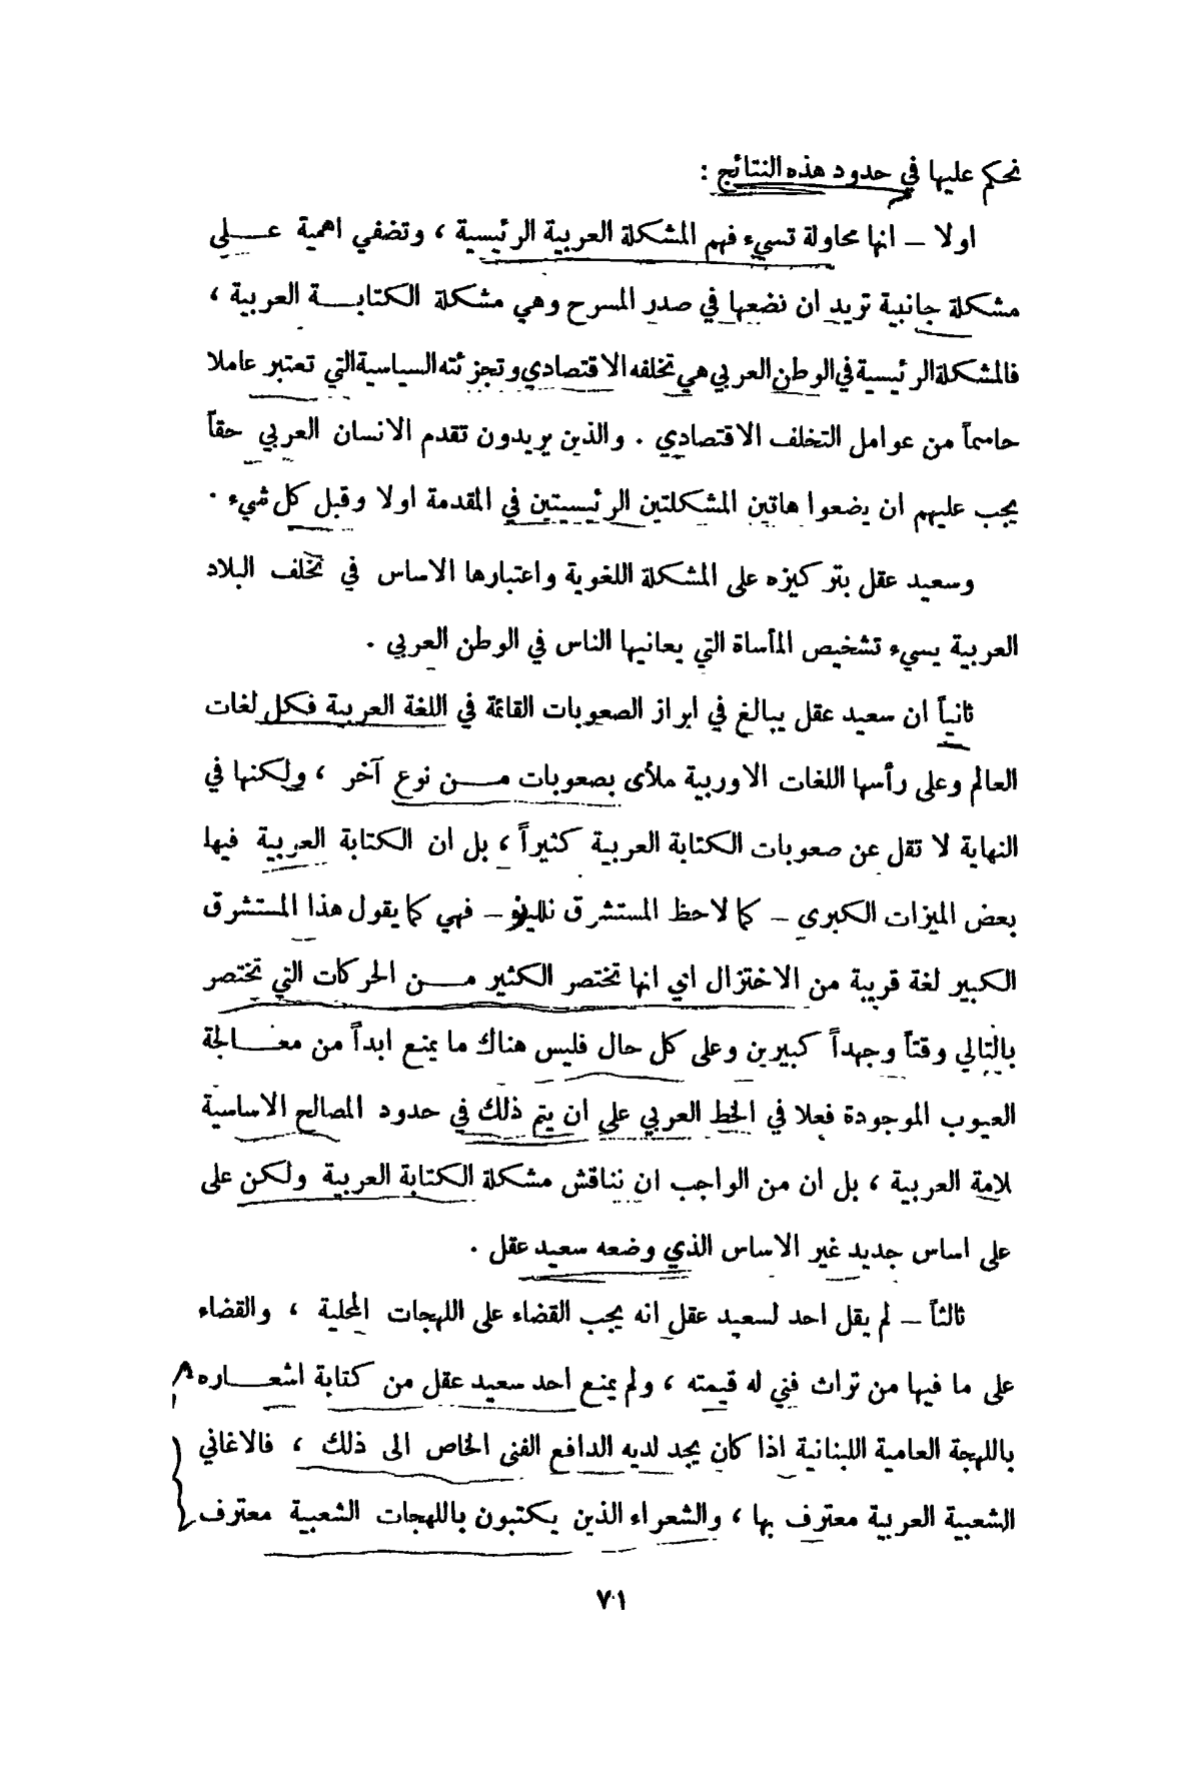 نحكم عليها في حدود هذه النتائج :
اولا – انها محاولة تسيء فهم المشكلة العربية الرئيسية ، وتضفي اهمية عــلى
مشكلة جانبية تريد ان نضعها في صدر المسرح وهي مشكلة الكتابــة العربية ،
فالمشكلة الرئيسية في الوطن العربي هي تخلفه الاقتصادي وتجزئته السياسية التي تعتبر عاملا
حاسماً من عوامل التخلف الاقتصادي . والذين يريدون تقدم الانسان العربي حقاً
يجب عليهم ان يضعوا هاتين المشكلتين الرئيسيتين في المقدمة اولا وقبل كل شيء .
وسعيد عقل بتركيزه على المشكلة اللغوية واعتبارها الاساس في تخلف البلاد
العربية يسيء تشخيص المأساة التي يعانيها الناس في الوطن العربي .
ثانياً ان سعيد عقل يبالغ في ابراز الصعوبات القائمة في اللغة العربية فكل لغات
العالم وعلى رأسها اللغات الاوربية ملأى بصعوبات مــن نوع آخر ، ولكنها في
النهاية لا تقل عن صعوبات الكتابة العربية كثيراً ، بل ان الكتابة العربية فيها
بعض الميزات الكبرى – كما لاحظ المستشرق نللينو – فهي كما يقول هذا المستشرق
الكبير لغة قريبة من الاختزال اي انها تختصر الكثير مــن الحركات التي تختصر
بالتالي وقتاً وجهداً كبيرين وعلى كل حال فليس هناك ما يمنع ابداً من معــالجة
العيوب الموجودة فعلا في الخط العربي على ان يتم ذلك في حدود المصالح الاساسية
للامة العربية ، بل ان من الواجب ان نناقش مشكلة الكتابة العربية ولكن على
على اساس جديد غير الاساس الذي وضعه سعيد عقل .
ثالثاً – لم يقل احد لسعيد عقل انه يجب القضاء على اللهجات المحلية ، والقضاء
على ما فيها من تراث فني له قيمته ، ولم يمنع احد سعيد عقل من كتابة اشعــاره
باللهجة العامية اللبنانية اذا كان يجد لديه الدافع الفني الخاص الى ذلك ، فالاغاني
الشعبية العربية معترف بها ، والشعراء الذين يكتبون باللهجات الشعبية معترف
٧١